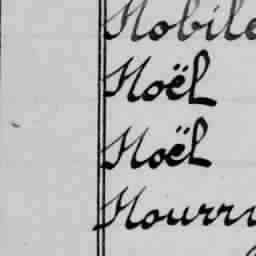 Nobile
Noël
Noël
Nourri